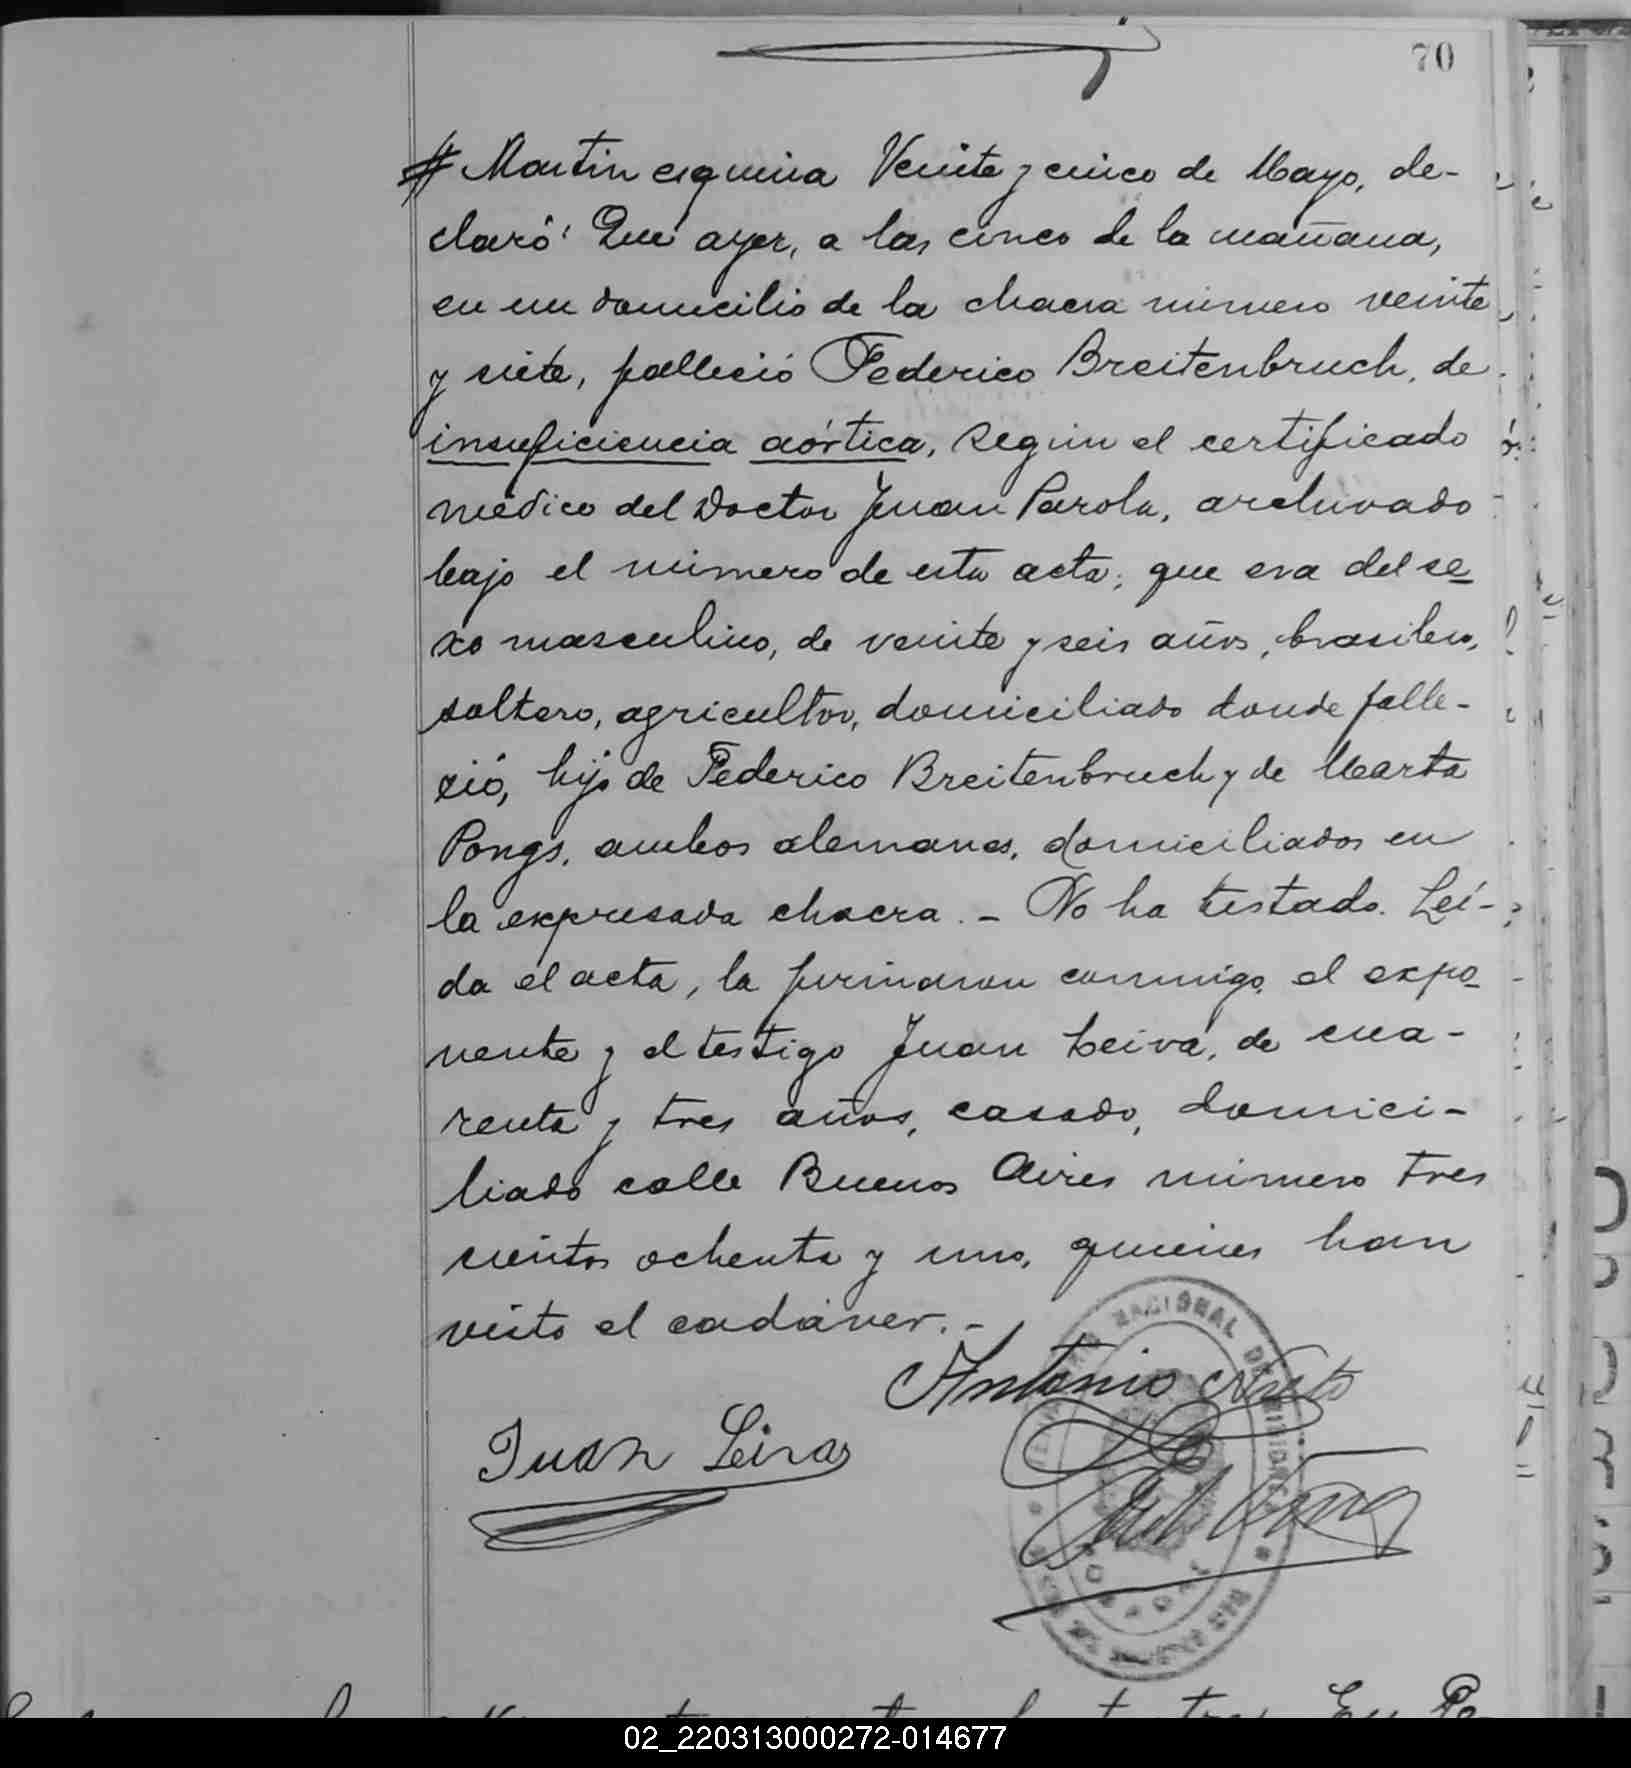 70
# Martin esquina Veinte y cinco de Mayo, de-
claró: Que ayer, a las cinco de la mañana,
en un domicilio de la chacra número veinte
y siete, falleció Federico Breitenbruch, de
insuficiencia aórtica, según el certificado
médico del Doctor Juan Parola, archivado
bajo el número de esta acta; que era del se
xo masculino, de veinte y seis años, brasilero,
soltero, agricultor, domiciliado donde falle-
ció, hijo de Federico Breitenbruch y de Marta
Pongs, ambos alemanes, domiciliados en
la expresada chacra. - No ha testado. Leí-
da el acta, la firmaron conmigo, el expo-
nente y el testigo Juan Leiva, de cua-
renta y tres años, casado, domici-
liado calle Buenos Aires número tres
cientos ochenta y uno, quienes han
visto el cadáver. -
Antonio
Juan Leiva
NACIONAL DE
02_220313000272-014677